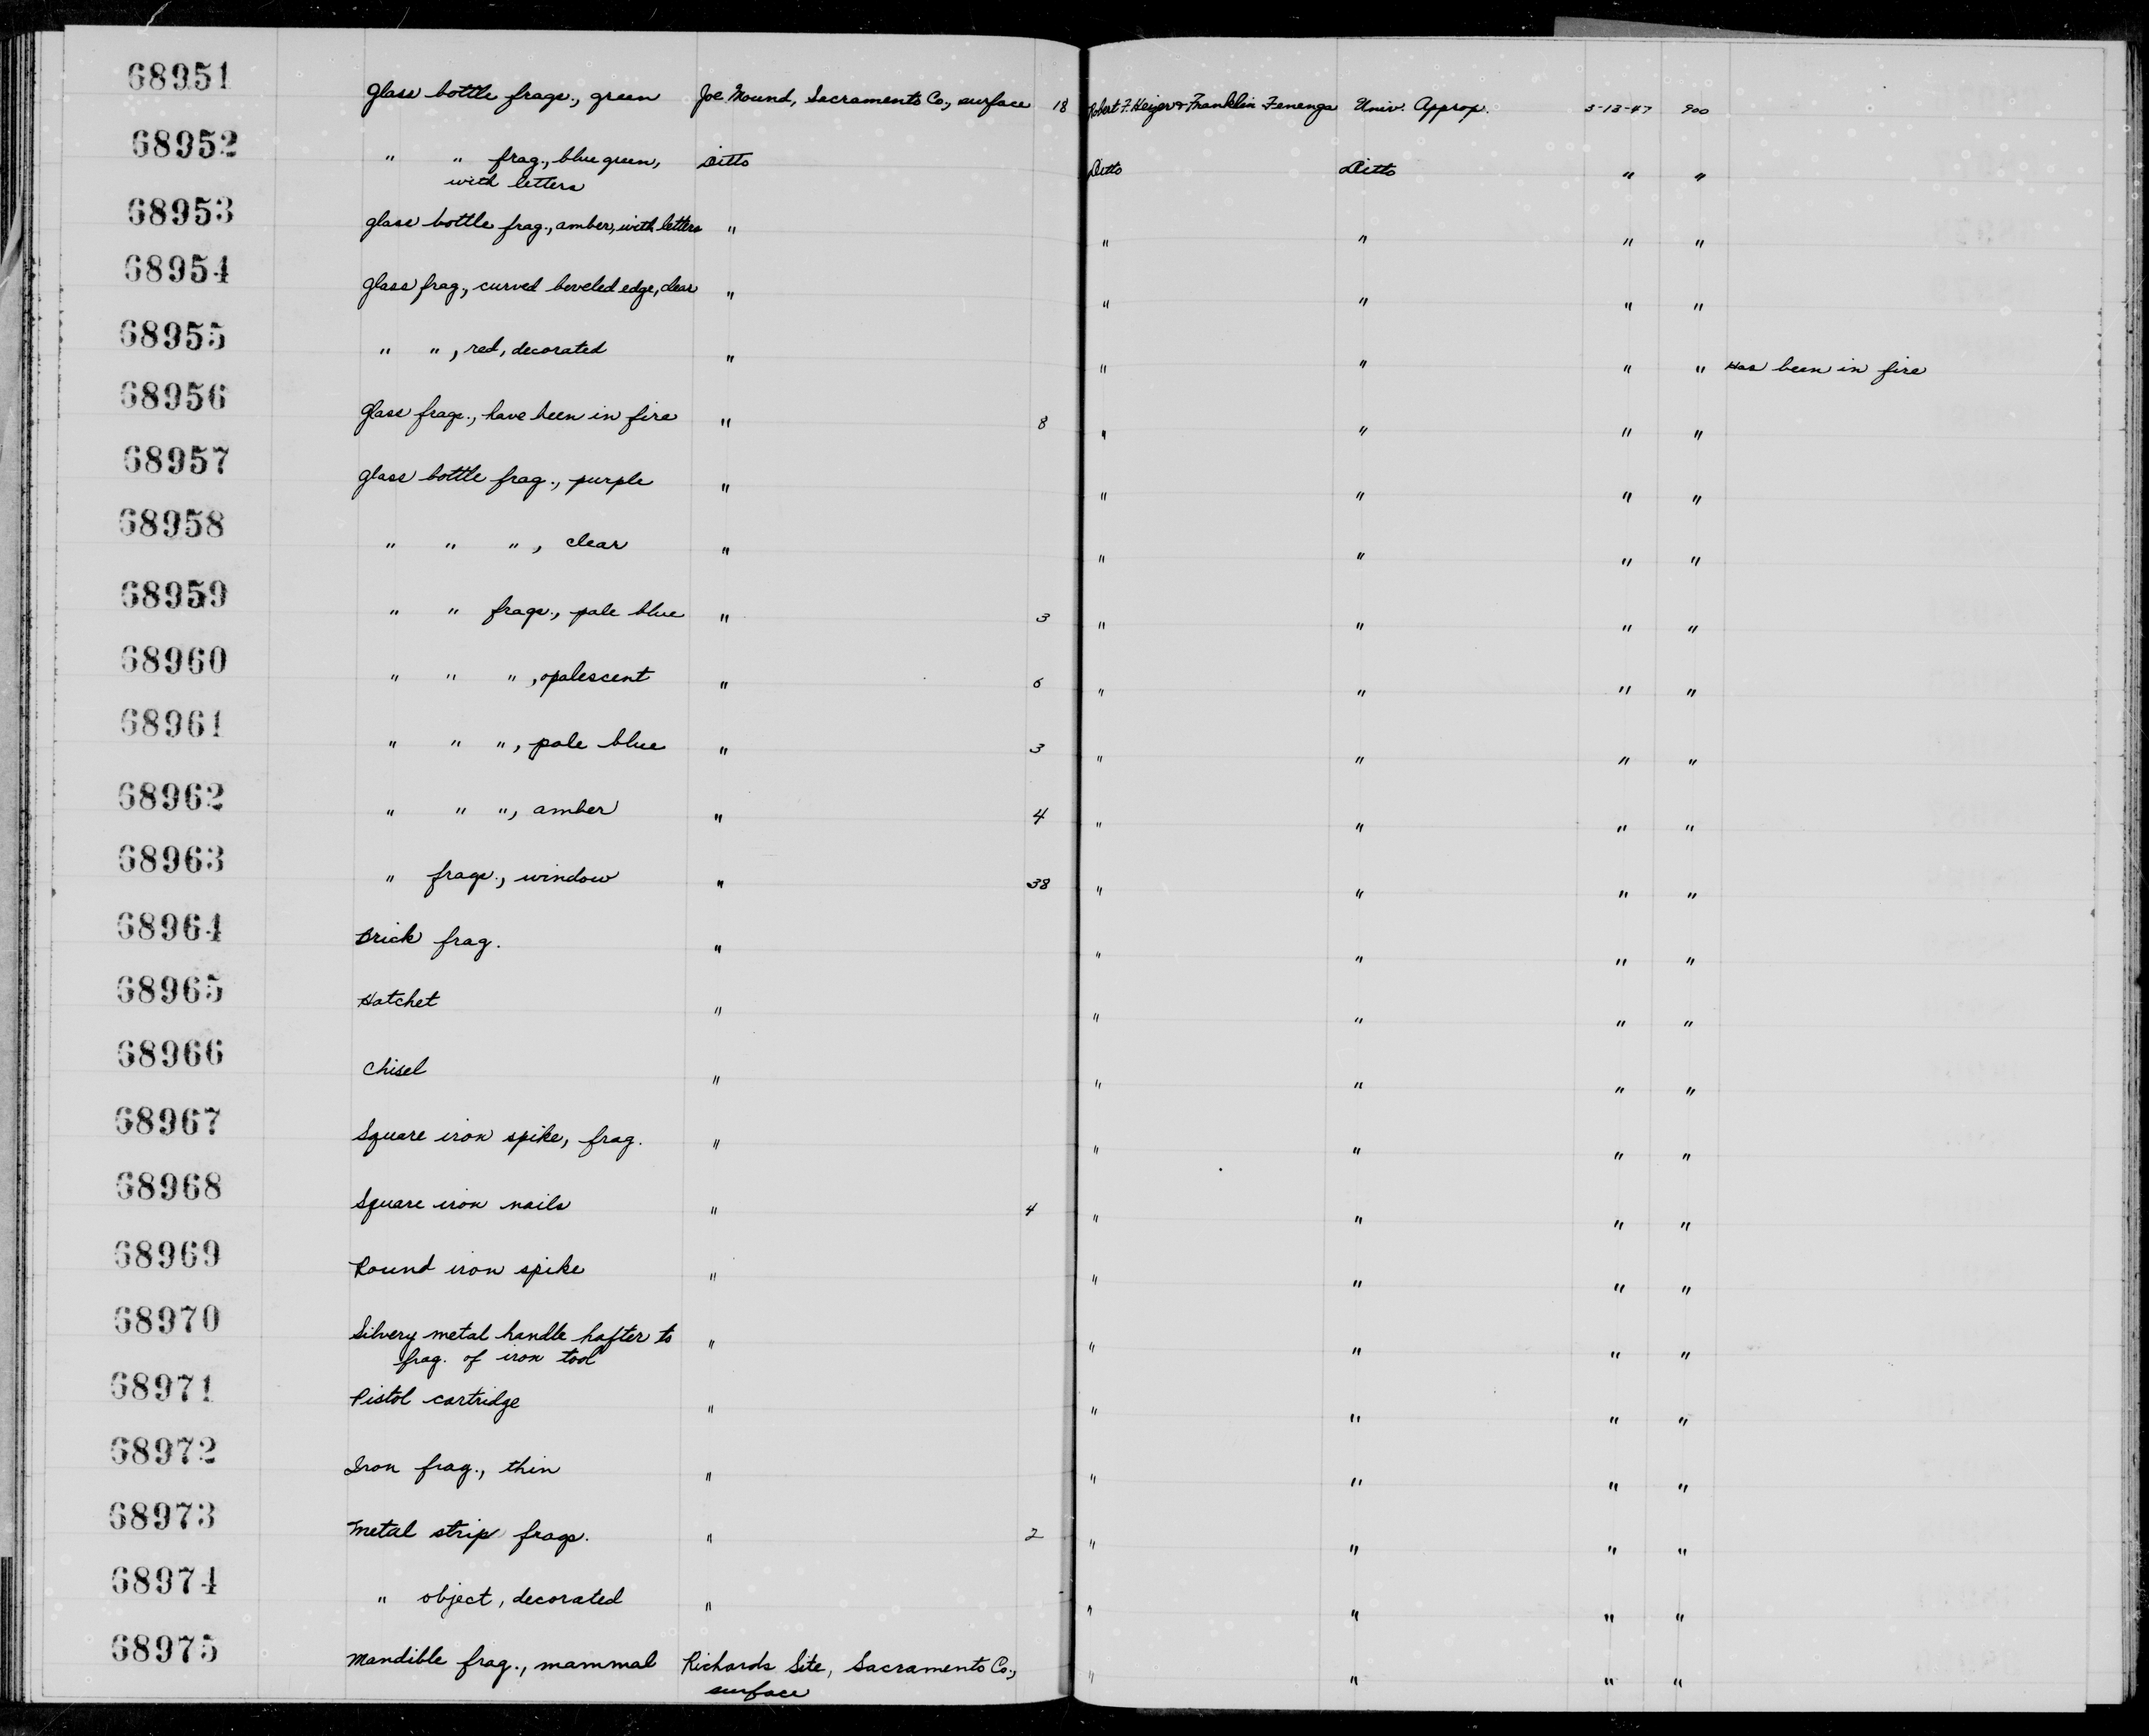 68951 Glass bottle frags., green Joe Mound, Sacramento Co., surface 18 Robert F. Heizer & Franklin Fenenga Univ. Approp. 3-13-47 900
68952 " " frag., blue green, Ditto Ditto Ditto " "
with letters
68953 Glass bottle frag., amber, with letters " " " " "
68954 Glass frag., curved beveled edge, clear " " " " "
68955 " ", red, decorated " " " " " Has been in fire
68956 Glass frags., have been in fire " 8 " " " "
68957 Glass bottle frag., purple " " " " "
68958 " " ", clear " " " " "
68959 " " frags., pale blue " 3 " " " "
68960 " " ", opalescent " 6 " " " "
68961 " " ", pale blue " 3 " " " "
68962 " " ", amber " 4 " " " "
68963 " frags., window " 38 " " " "
68964 Brick frag. " " " " "
68965 Hatchet " " " " "
68966 Chisel " " " " "
68967 Square iron spike, frag. " " " " "
68968 Square iron nails " 4 " " " "
68969 Round iron spike " " " " "
68970 Silvery metal handle hafter to " " " " "
frag. of iron tool
68971 Pistol cartridge " " " " "
68972 Iron frag., thin " " " " "
68973 Metal strip frags. " 2 " " " "
68974 " object, decorated " " " " "
68975 Mandible frag., mammal Richards Site, Sacramento Co., " " " "
surface